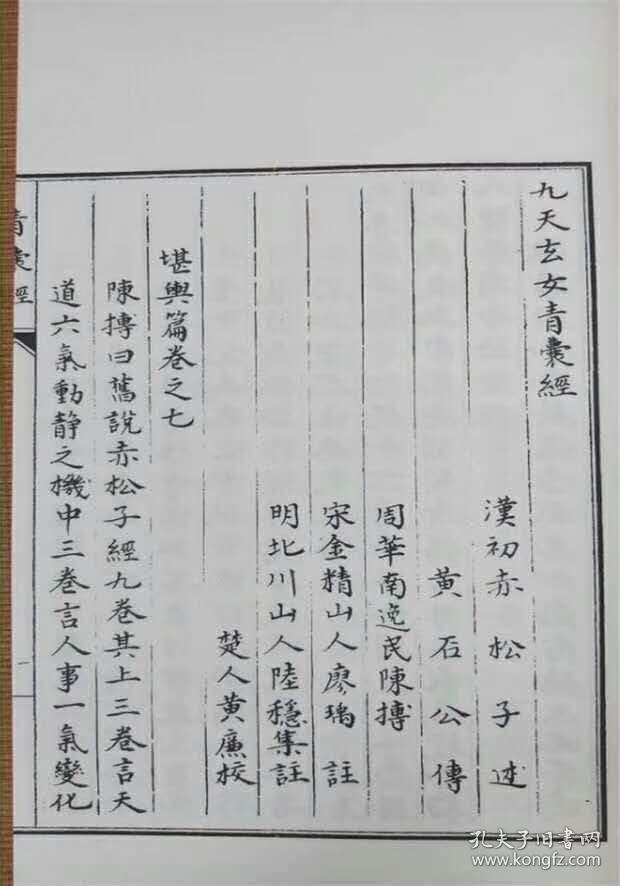 九天玄女青囊經
漢初赤松子述
黃石公傳
周華南逸民陳摶
宋金精山人廖瑀註
明北川山人陸穩集註
楚人黃廉校
堪輿篇卷之七
陳摶曰舊說赤松子經九卷其上三卷言天
道六氣動靜之機中三卷言人事一氣變化
青囊經
一
孔夫子旧书网
www.kongfz.com